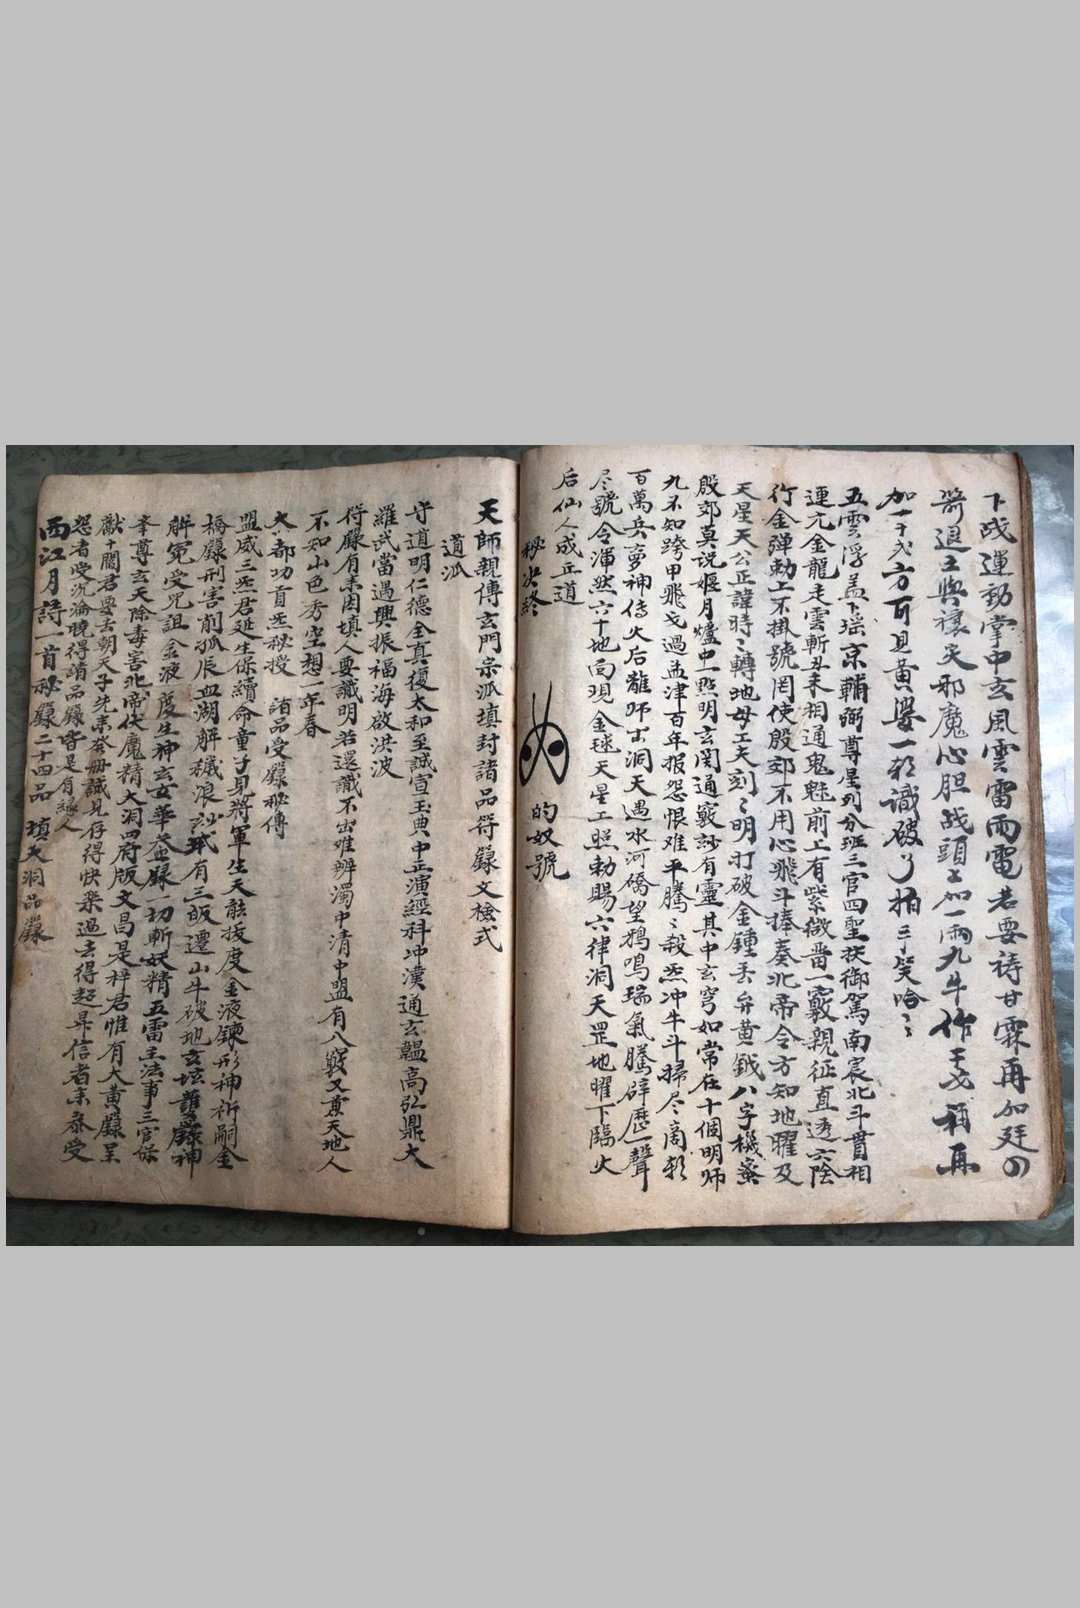 下战運動掌中玄風雲雷雨電若要祷甘霖再加廷
箭退工興禳天邪魔心胆战頭上加一兩九牛作再
加一十方可見黃一识破了拍三笑哈〻
五雲浮盖下瑶京輔弼尊星列分班三官四聖扶御駕南宸北斗貫相
連亢金龍走雲斬丑未相通鬼魅前上有紫微畨一竅親征直透六陰
行金弹勅上不掛號罔使殷郊不用心飛斗捧奏北帝令方知地曜及
天星天公正諱時〻轉地母工夫刻〻明打破金鍾丢弁黄鉞八字機蜜
殷郊莫说姬月爐中一點明玄関通竅訬有靈其中玄穹如常在十個明师
九不知跨甲飛戈過孟津百年报怨恨难平騰〻殺炁冲牛斗掃尽商
百萬兵神传火后雛师出洞天遇水河僑望鴉鳴瑞氣騰辟歷一聲
尽號令渾然六十地向現金毬天星工照勅賜六律洞天罡地曜下臨火
后仙人成丘道
秘决終
的奴號
天師親傳玄門宗派填封諸品符籙文檢式
道派
守道明仁德全真復太和至誠宣玉典中正演經科冲漢通玄韞高弘鼎大
羅武當過興振福海啟洪波
符籙有来因填人要識明若還識不出难辨濁中清中盟有八竅又貫天地人
不知山色秀空想一年春
大都功首炁秘授 諸品受籙秘傳
盟威三炁君延生保續命童子見將軍生天能拔度金液鍊形神祈嗣金
橋籙刑害削孤辰血湖解穢浪訬有三皈遷山牛破地玄坛護籙神
解冤受咒詛金液度生神玄女華盖籙一切斬妖精五雷主法事三官保
奉尊玄天除毒害北帝伏魔精大洞四府版文昌是梓君惟有大黃籙呈
獻十閻君要去朝天子先来登册誠見存得快樂過去得超昇信者来叅受
怨者受沉淪曉得諸品籙皆是有緣人
西江月詩一首秘籙二十四品 填大洞品籙